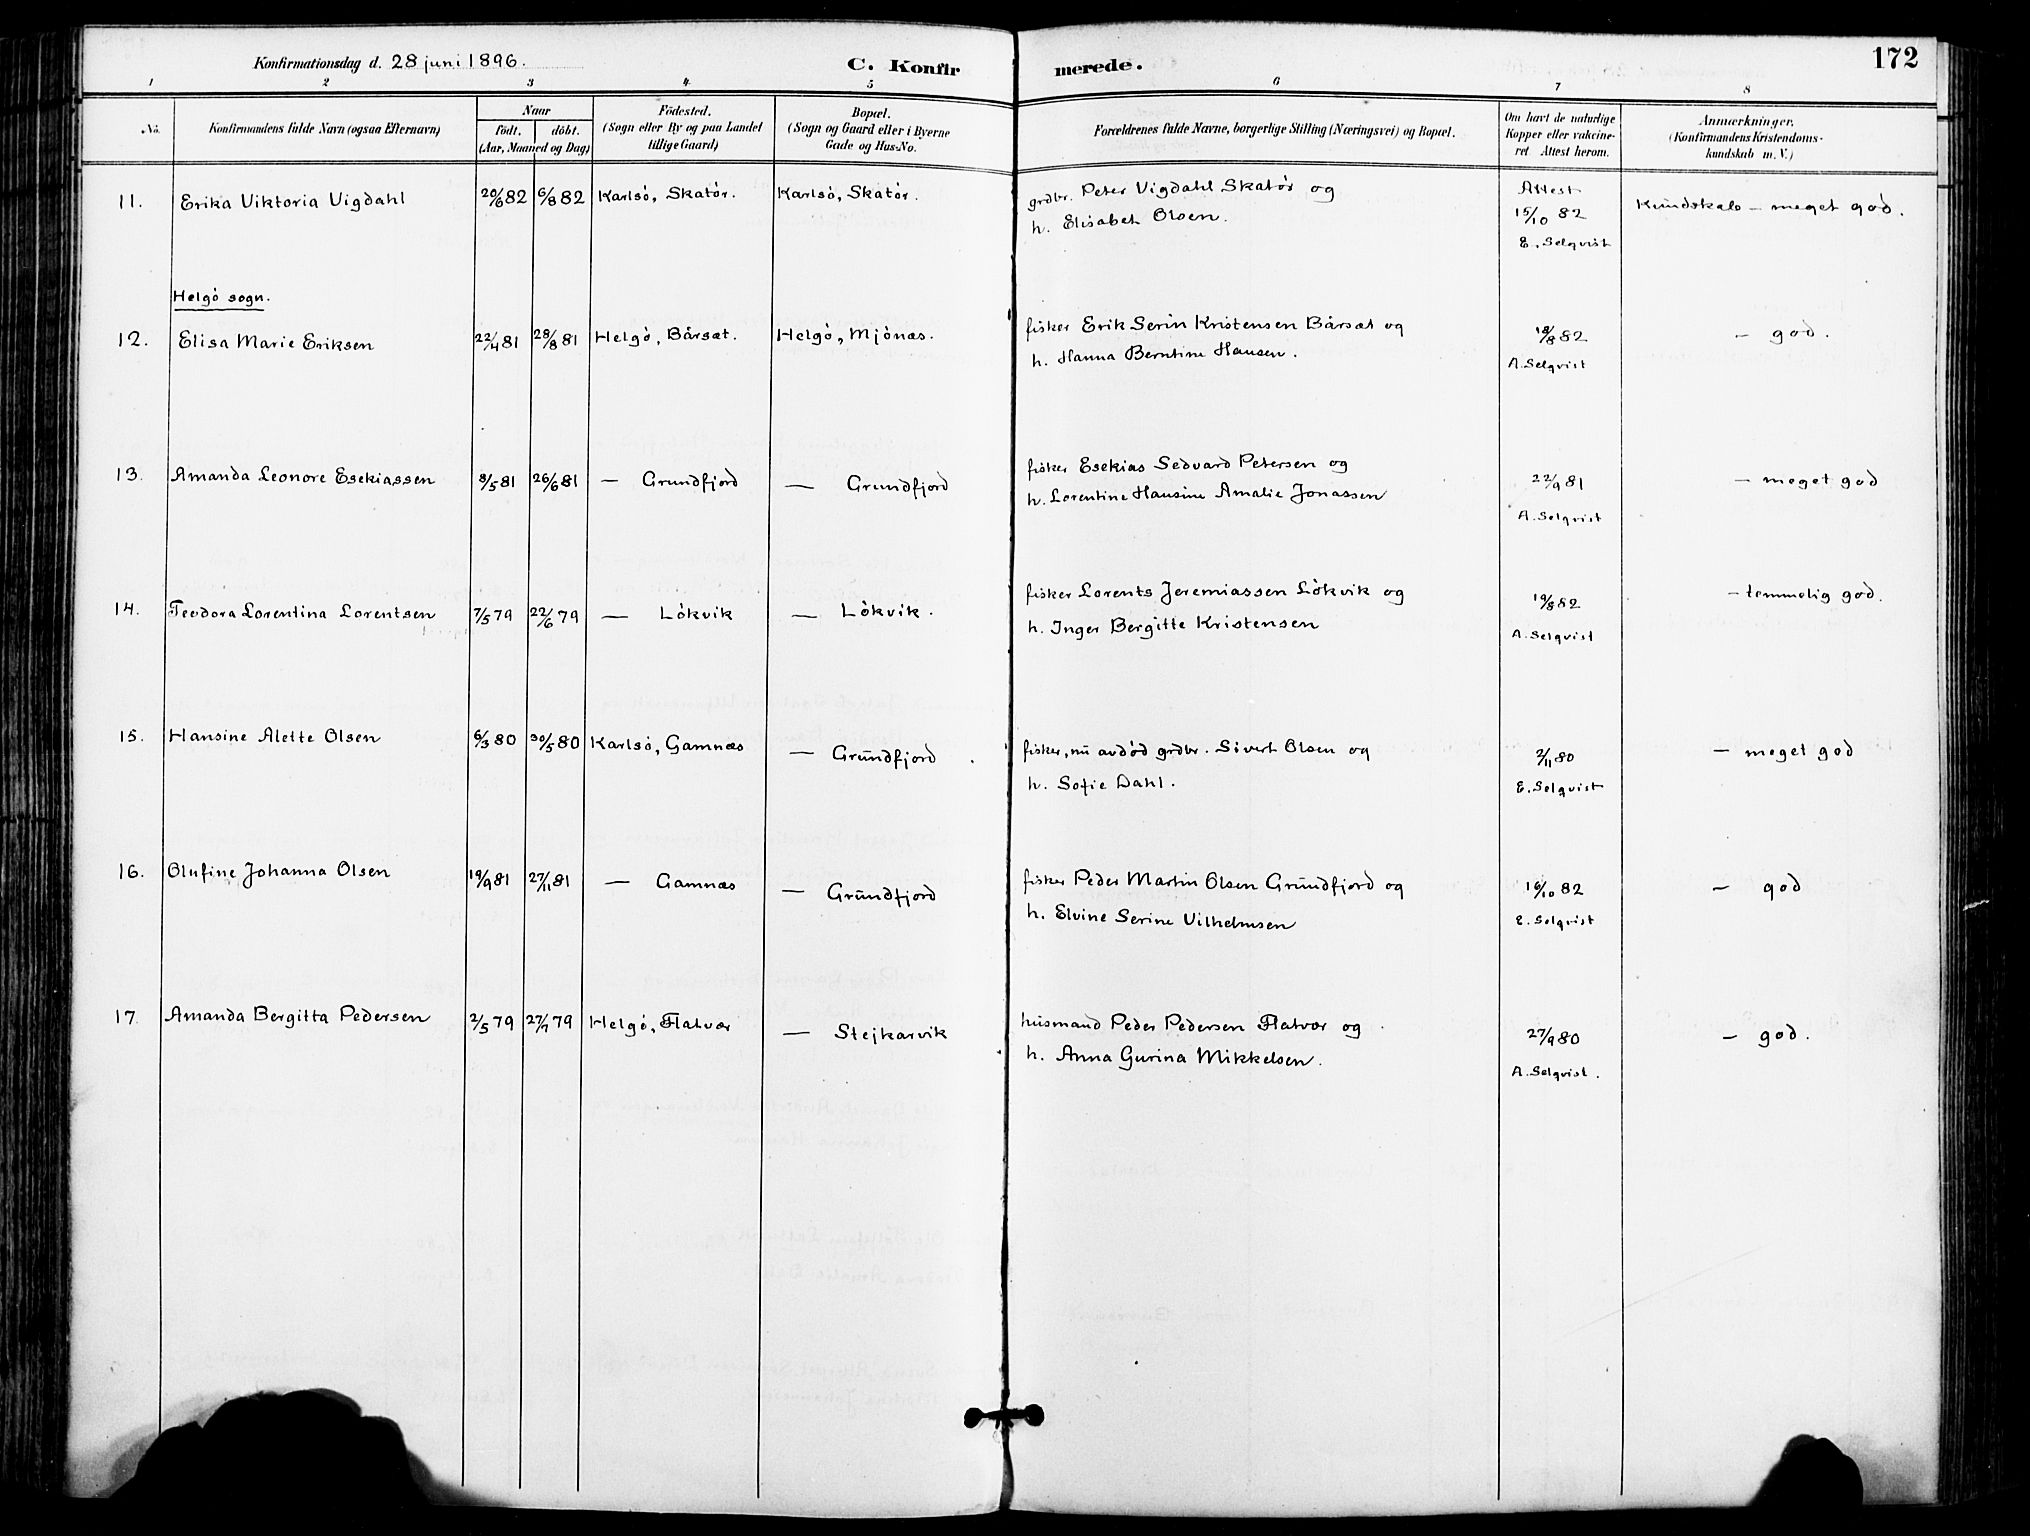 172
Konfirmationsdag d. 28 juni 1896.
C. Konfirmerede.
1 2 3 4 5 6 7 8
No.
Konfirmandens fulde Navn (ogsaa Efternavn)
Naar
födt. döbt.
(Aar, Maaned og Dag)
Födested.
(Sogn eller By og paa Landet
tillige Gaard)
Bopæl.
(Sogn og Gaard eller i Byerne
Gade og Hus-No.
Forældrenes fulde Navne, borgerlige Stilling (Næringsvei) og Bopæl.
Om havt de naturlige
Kopper eller vakcine-
ret Attest herom.
Anmærkninger.
(Konfirmandens Kristendoms-
kundskab m. V.)
11. Erika Viktoria Vigdahl 20/6 82 6/8 82 Karlsö, Skatör. Karlsö, Skatör. grdbr. Peter Vigdahl Skatör og Attest Kundskab - meget god.
h. Elisabet Olsen. 15/10 82
E. Selqvist
Helgö sogn.
12. Elisa Marie Eriksen 22/4 81 28/8 81 Helgö, Bårsæt. Helgö, Mjönæs. fisker Erik Serin Kristensen Bårsæt og 18/8 82 - god.
h. Hanna Berntine Hansen. A. Selqvist
13. Amanda Leonore Esekiassen 8/5 81 26/6 81 — Grundfjord — Grundfjord fisker Esekias Sedvard Petersen og 22/9 81 - meget god
h. Lorentine Hansine Amalie Jonassen A. Selqvist
14. Teodora Lorentina Lorentsen 7/5 79 22/6 79 — Lökvik — Lökvik. fisker Lorents Jeremiassen Lökvik og 19/8 82 - temmelig god.
h. Inger Bergitte Kristensen A. Selqvist
15. Hansine Alette Olsen 6/3 80 30/5 80 Karlsö, Gamnæs — Grundfjord. fisker, nu avdöd grdbr. Sivert Olsen og 2/11 80 - meget god
h. Sofie Dahl. E. Selqvist
16. Olufine Johanna Olsen 19/9 81 27/11 81 — Gamnæs — Grundfjord fisker Peder Martin Olsen Grundfjord og 16/10 82 - god
h. Elvine Serine Vilhelmsen E. Selqvist
17. Amanda Bergitta Pedersen 2/5 79 27/7 79 Helgö, Flatvær — Stejkarvik husmand Peder Pedersen Flatvær og 27/9 80 - god.
h. Anna Gurina Mikkelsen. A. Selqvist.